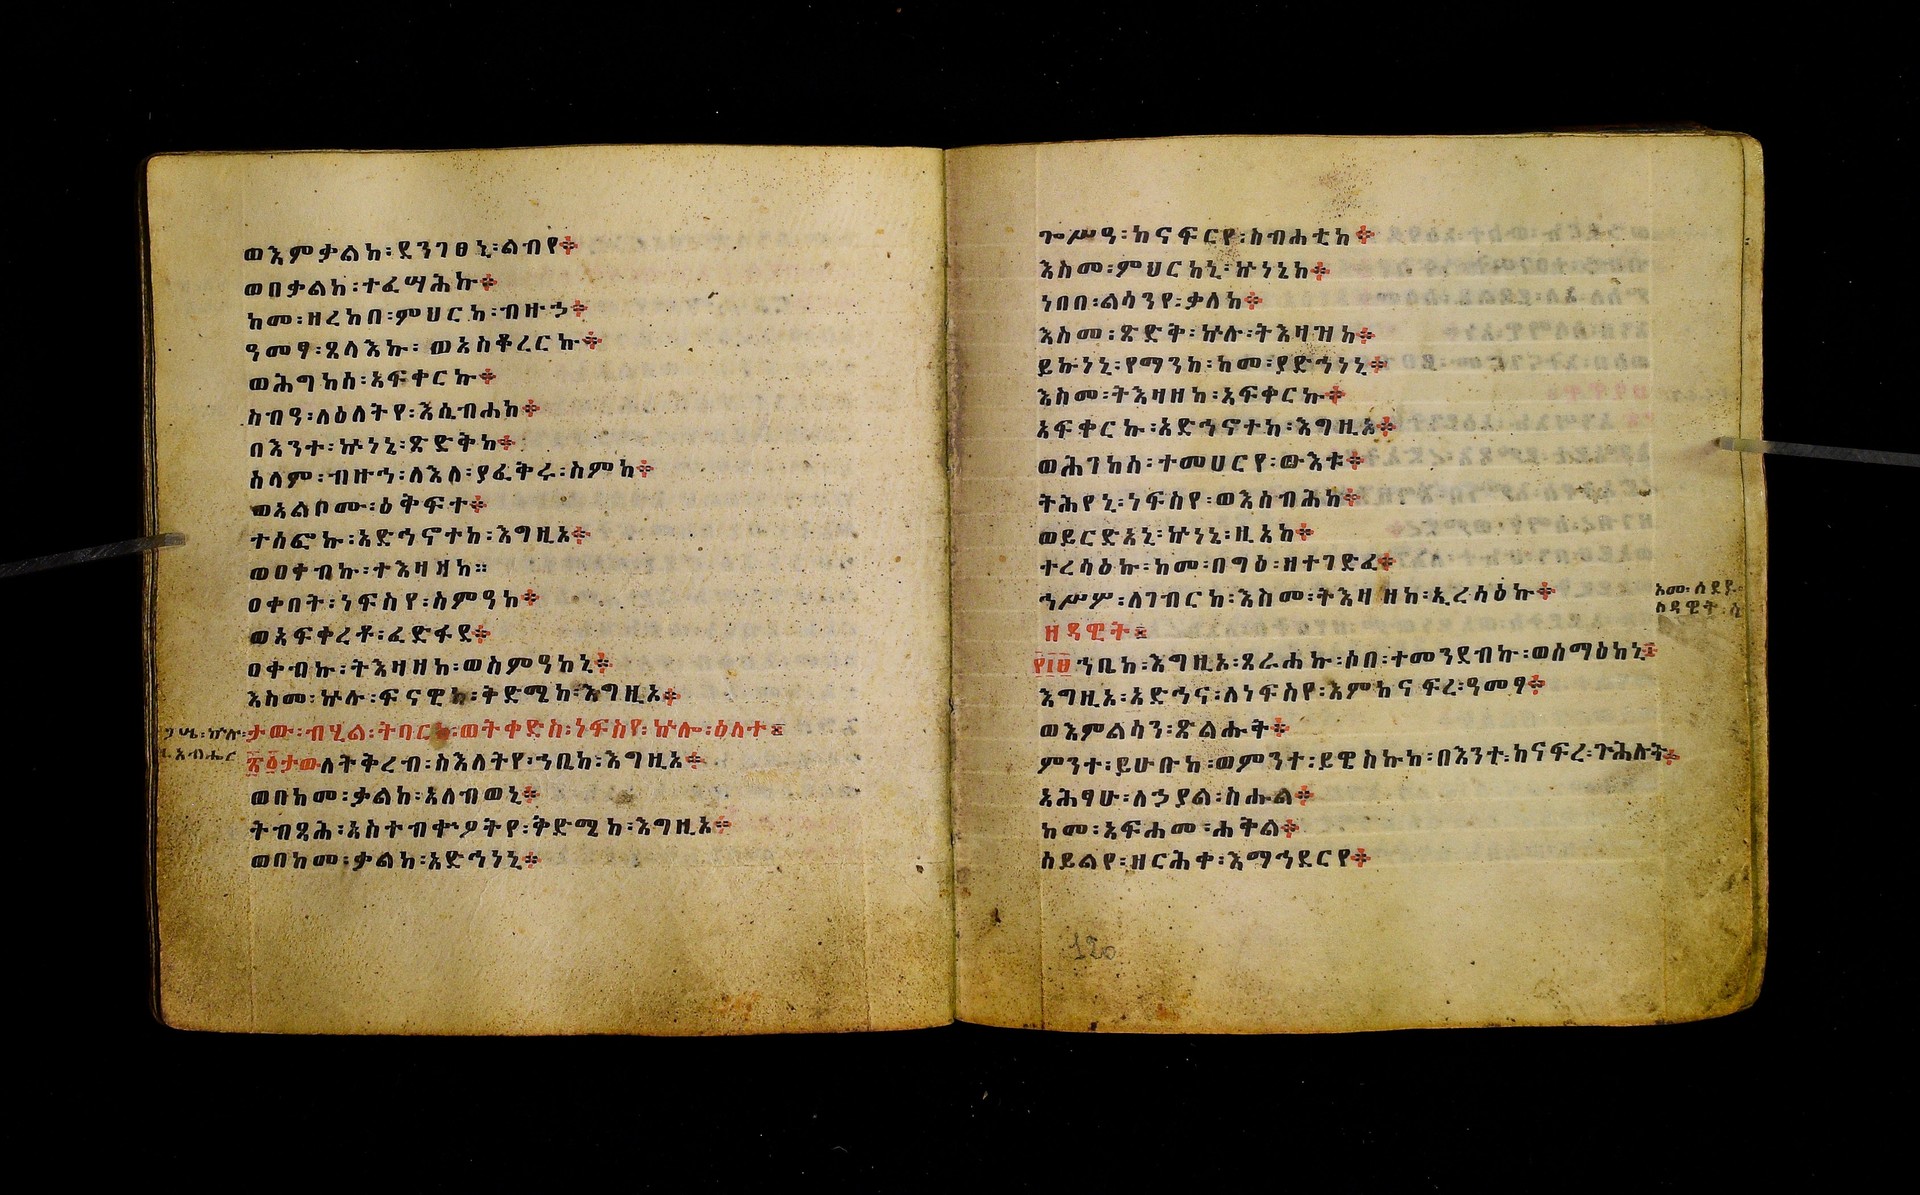 ወእምቃልከ፡ደንገፀኒ፡ልብየ፨
ወበቃልከ፡ተፈሣሕኩ፨
ከመ፡ዘረከበ፡ምህርከ፡ብዙኃ፨
ዓመፃ፡ጸላእኩ፡ወአስቆረርኩ፨
ወሕግከሰ፡አፍቀርኩ፨
ስብዓ፡ለዕለትየ፡እሴብሐከ፨
በእንተ፡ኵነኔ፡ጽድቅከ፨
ሰላም፡ብዙኅ፡ለእለ፡ያፈቅሩ፡ስምከ፨
ወአልቦሙ፡ዕቅፍተ፨
ተሰፎኩ፡አድኅኖተከ፡እግዚኦ፨
ወዐቀብኩ፡ተእዛዛከ።
ዐቀበት፡ነፍስየ፡ስምዓከ፨
ወአፍቀረቶ፡ፈድፋደ፨
ዐቀብኩ፡ትእዛዘከ፡ወስምዓከኒ፨
እስመ፡ኵሉ፡ፍናዊከ፡ቅድሜከ፡እግዚኦ፨
ታው፡ብሂል፡ትባርክ፡ወትቀድስ፡ነፍስየ፡ኵሎ፡ዕለተ፤
ታውለትቅረብ፡ስእለትየ፡ኀቤከ፡እግዚኦ፨
ወበከመ፡ቃልከ፡አለብወኒ፨
ትብጻሕ፡አስተብቍዖትየ፡ቅድሜከ፡እግዚኦ፨
ወበከመ፡ቃልከ፡አድኅነኒ፨
ጐሥዓ፡ከናፍርየ፡ስብሐቲከ፨
እስመ፡ምህርከኒ፡ኵነኔከ፨
ነበበ፡ልሳንየ፡ቃለከ፨
እስመ፡ጽድቅ፡ኵሉ፡ትእዛዝከ፨
ይኩነኒ፡የማንከ፡ከመ፡ያድኅነኒ፨
እስመ፡ትእዛዘከ፡አፍቀርኩ፨
አፍቀርኩ፡አድኅኖተከ፡እግዚኦ፨
ወሕገከሰ፡ተመሀርየ፡ውእቱ፨
ትሕየኒ፡ነፍስየ፡ወእሰብሕከ፨
ወይርድአኒ፡ኵነኔ፡ዚአከ፨
ተረሳዕኩ፡ከመ፡በግዕ፡ዘተገድፈ፨
ኅሥሦ፡ለገብርከ፡እስመ፡ትእዛዘከ፡ኢረሳዕኩ፨
አመ፡ሰደዶ፡
ዘዳዊት፤
፻፲፱ኀቤከ፡እግዚኦ፡ጸራሕኩ፡ሶበ፡ተመንደብኩ፡ወሰማዕከኒ፤
እግዚኦ፡አድኅና፡ለነፍስየ፡እምከናፍረ፡ዓመፃ፨
ወእምልሳን፡ጽልሑት፨
ምንተ፡ይሁቡከ፡ወምንተ፡ይዌስኩከ፡በእንተ፡ከናፍረ፡ጉሕሉት፨
አሕፃሁ፡ለኃያል፡ስሑል፨
ከመ፡አፍሐመ፡ሐቅል፨
ሰይልየ፡ዘርሕቀ፡እማኅደርየ፨
120